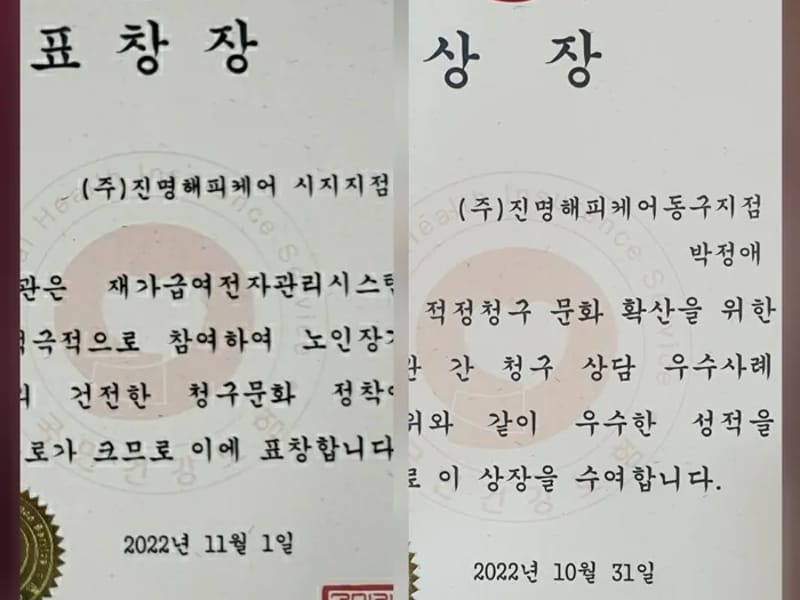 표 창 장
(주)진명해피케어 시지지점
관은 재가급여전자관리시스템
적극적으로 참여하여 노인장기
의 건전한 청구문화 정착에
로가 크므로 이에 표창합니다
2022년 11월 1일
상 장
(주)진명해피케어동구지점
박정애
적정청구 문화 확산을 위한
간 청구 상담 우수사례
위와 같이 우수한 성적을
로 이 상장을 수여합니다.
2022년 10월 31일